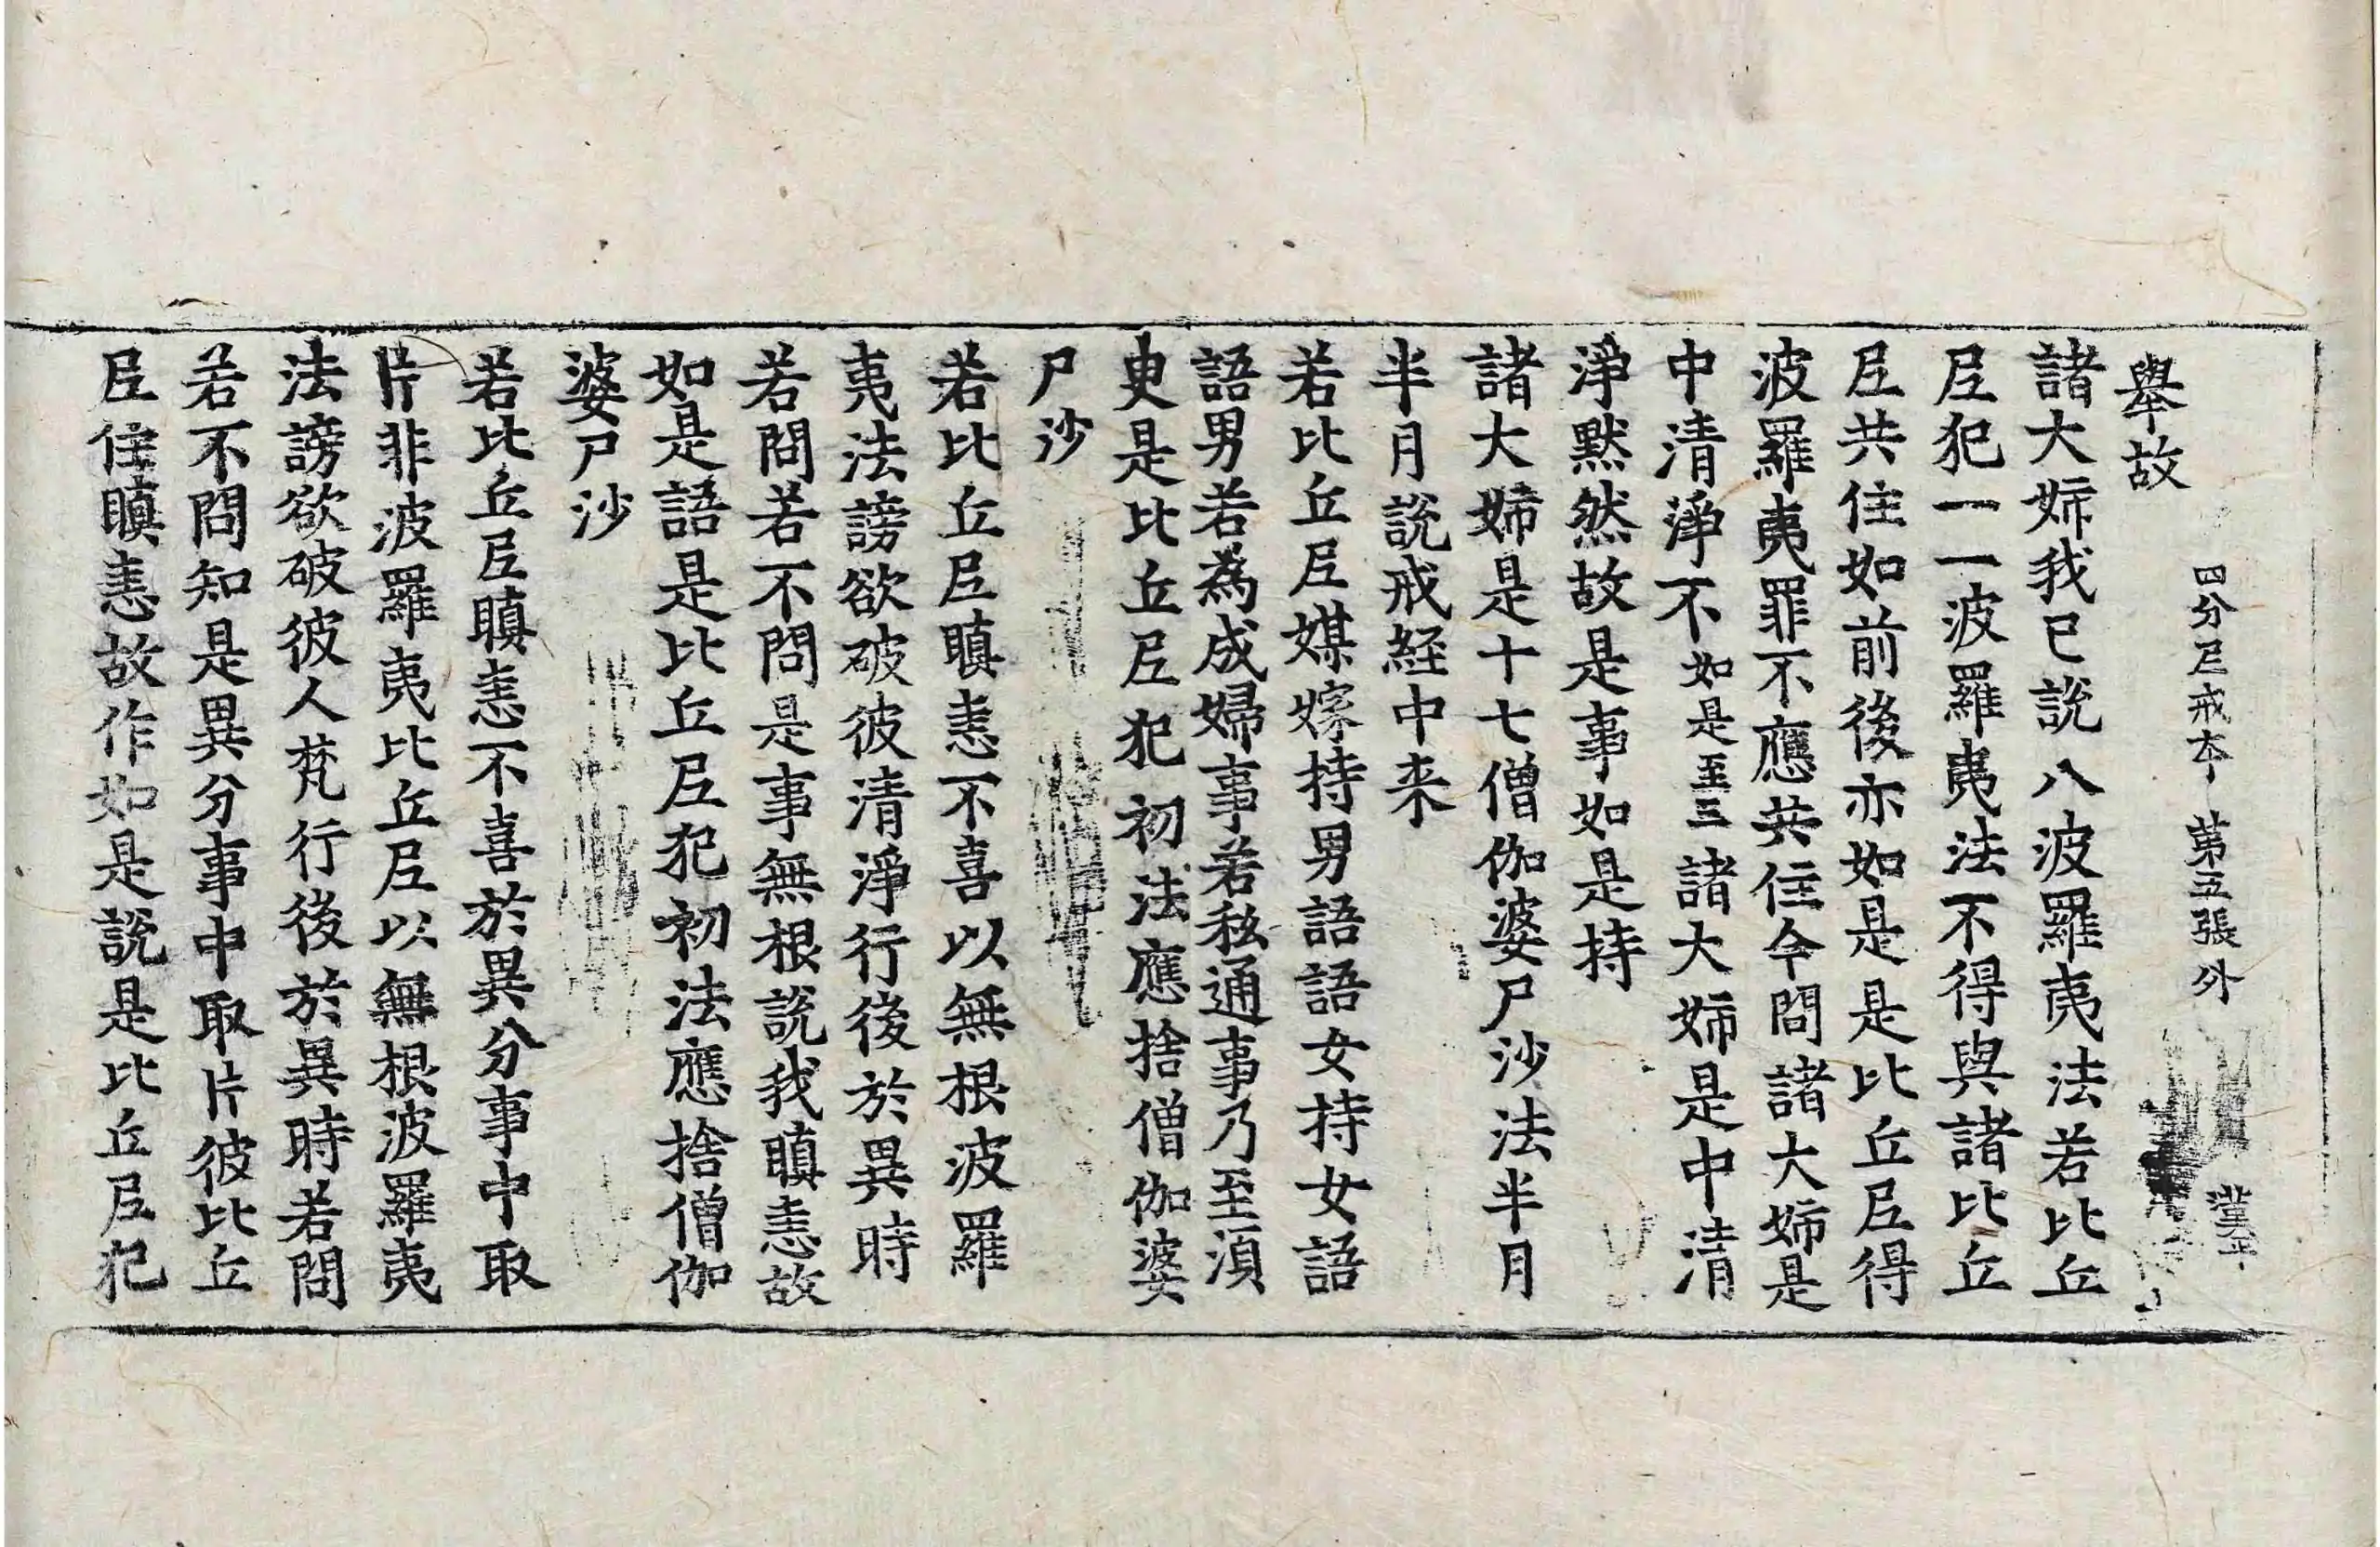 四分尼戒本 第五張 外
舉故
諸大姉我已說八波羅夷法若比丘
尼犯一一波羅夷法不得與諸比丘
尼共住如前後亦如是是比丘尼得
波羅夷罪不應共住今問諸大姉是
中清淨不如是至三諸大姉是中清
淨默然故是事如是持
諸大姉是十七僧伽婆尸沙法半月
半月說戒経中来
若比丘尼媒嫁持男語語女持女語
語男若為成婦事若私通事乃至湏
㬰是比丘尼犯初法應捨僧伽婆
尸沙
若比丘尼瞋恚不喜以無根波羅
夷法謗欲破彼清淨行後於異時
若問若不問是事無根說我瞋恚故
如是語是比丘尼犯初法應捨僧伽
婆尸沙
若比丘尼瞋恚不喜於異分事中取
片非波羅夷比丘尼以無根波羅夷
法謗欲破彼人梵行後於異時若問
若不問知是異分事中取片彼比丘
尼住瞋恚故作如是說是比丘尼犯